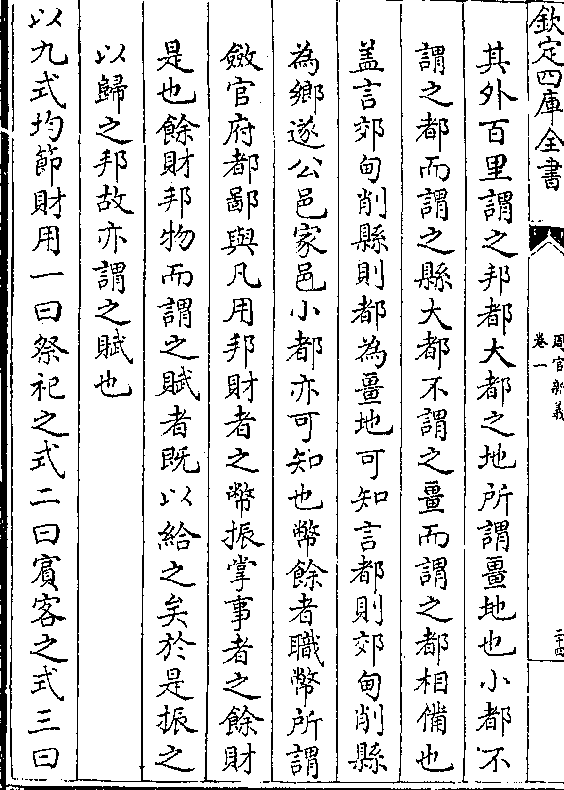 欽定四庫全書
周官新義
卷一
二十四
其外百里謂之邦都大都之地所謂畺地也小都不
謂之都而謂之縣大都不謂之畺而謂之都相備也
盖言郊甸削縣則都為畺地可知言都則郊甸削縣
為鄉遂公邑家邑小都亦可知也幣餘者職幣所謂
斂官府都鄙與凡用邦財者之幣振掌事者之餘財
是也餘財邦物而謂之賦者既以給之矣於是振之
以歸之邦故亦謂之賦也
以九式均節財用一曰祭祀之式二曰賓客之式三曰